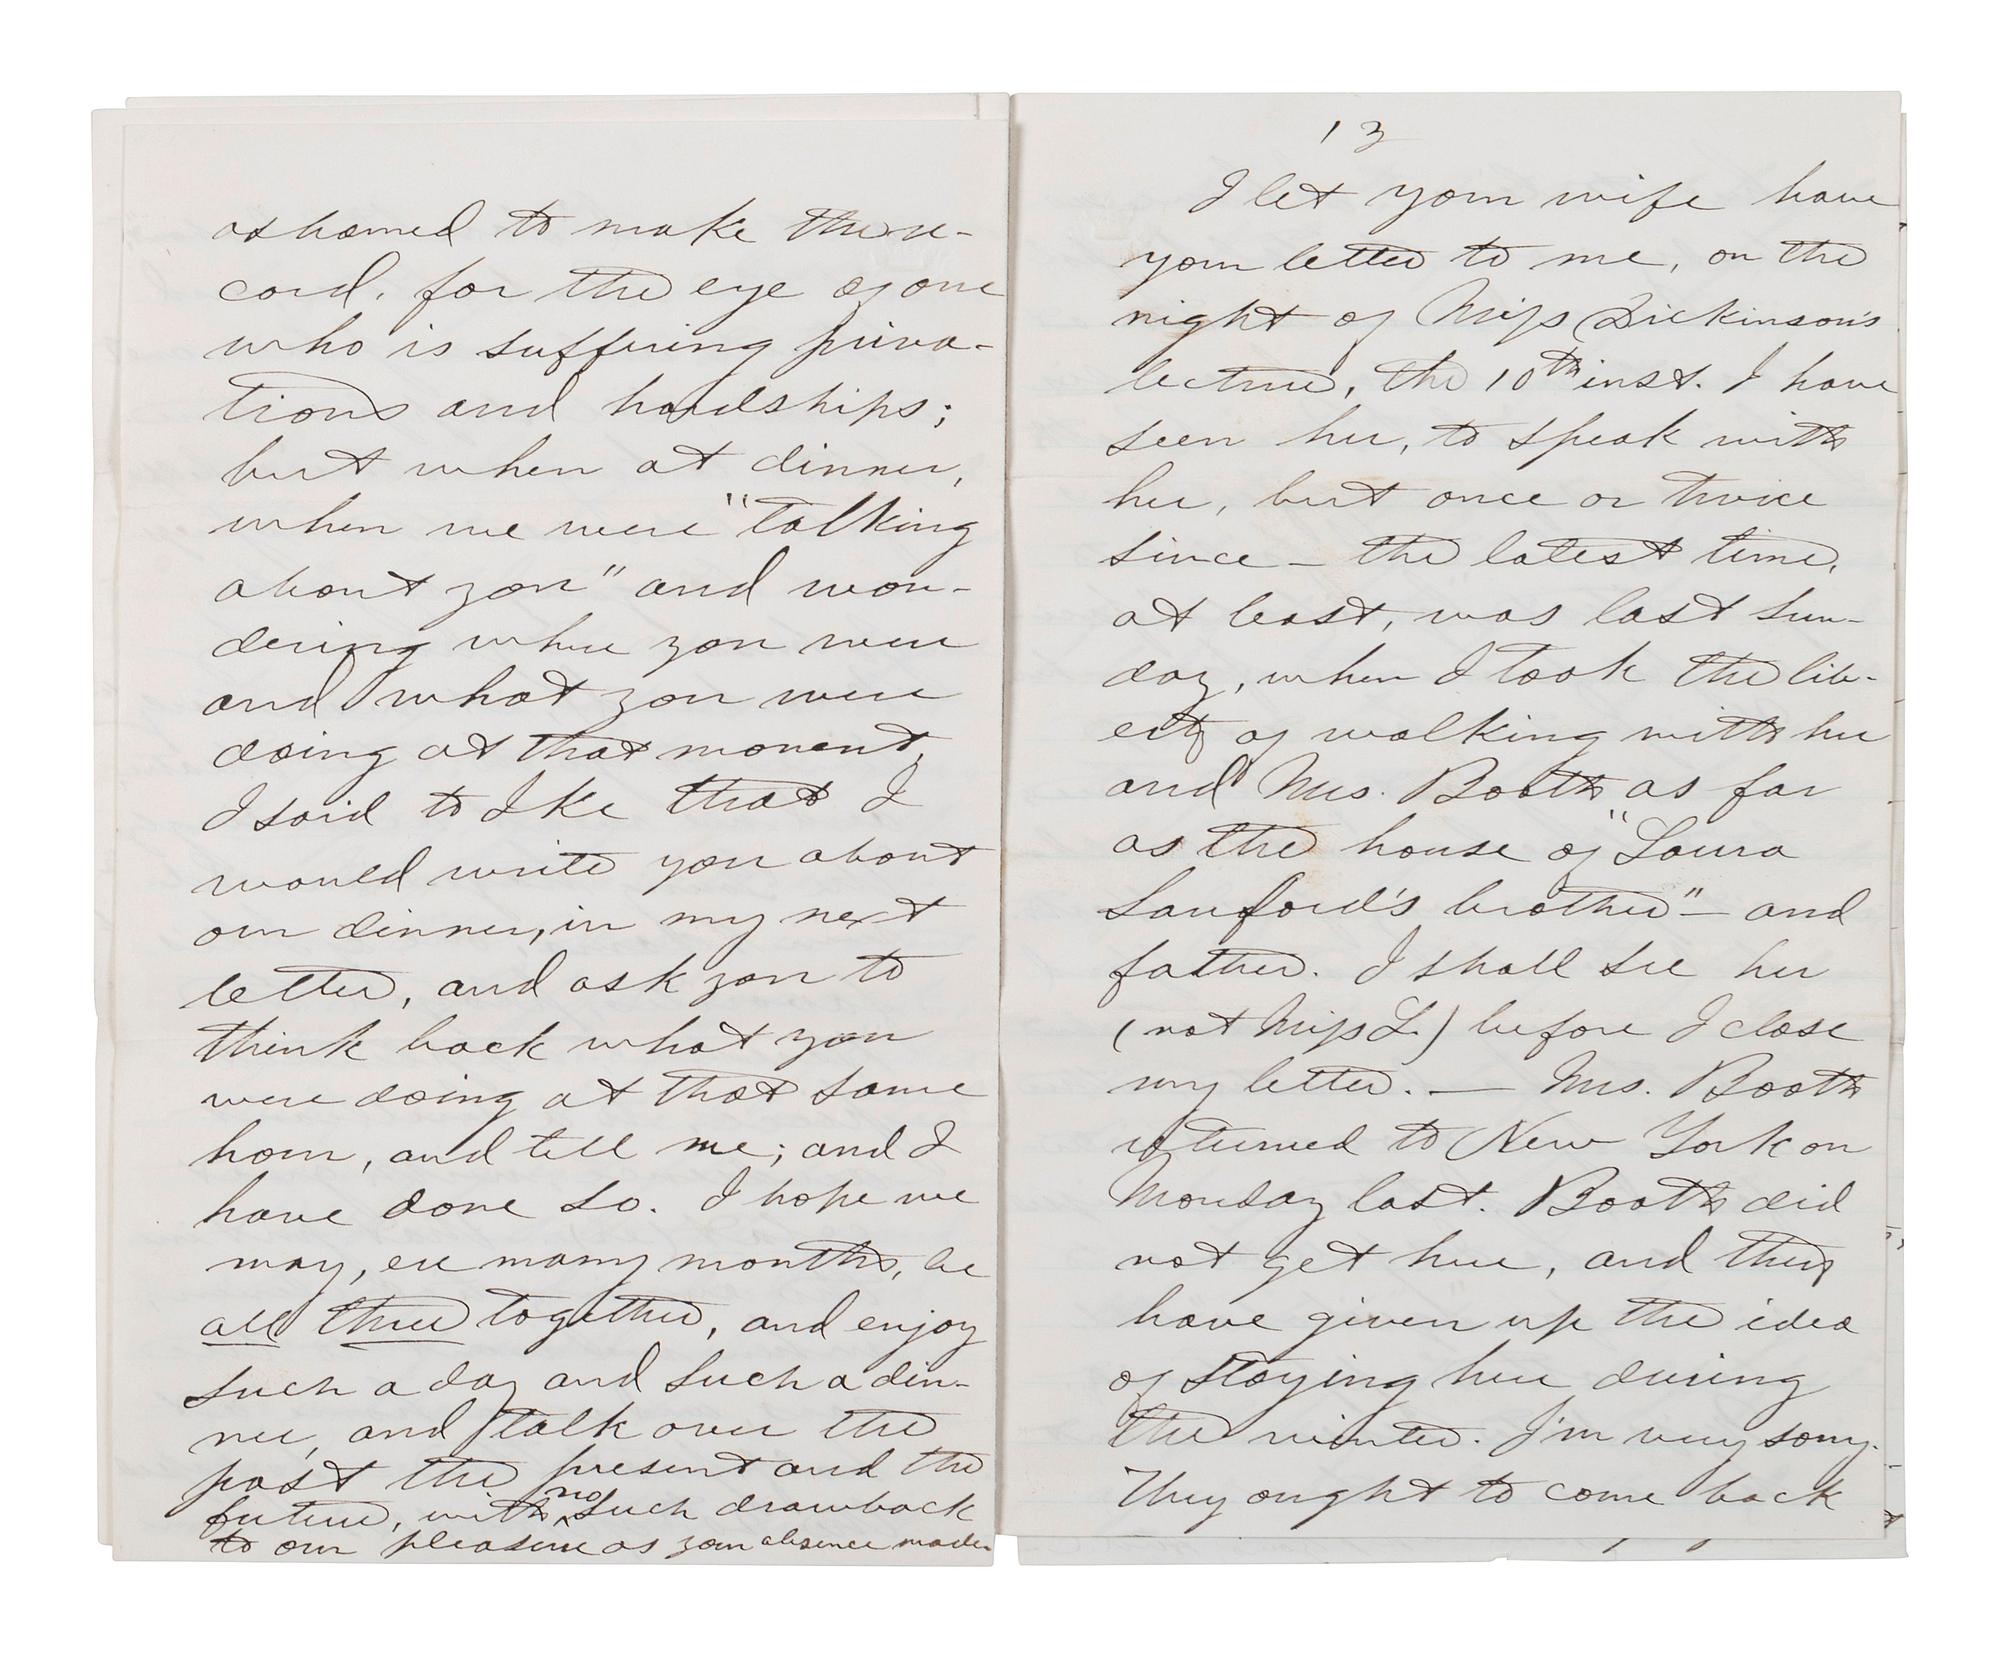 ashamed to make the re-
cord, for the eye of one
who is suffering priva-
tions and hardships;
but when at dinner,
when we were "talking
about you" and won-
dering where you were
and what you were
doing at that moment,
I said to Ike that I
would write you about
our dinner, in my next
letter, and ask you to
think back what you
were doing at that same
hour, and tell me; and I
have done so. I hope we
may, ere many months, be
all three together, and enjoy
such a day and such a din-
ner, and talk over the
past the present and the
future, with no such drawback
to our pleasure as your absence made.
13
I let your wife have
your letter to me, on the
night of Miss Dickinson's
lecture, the 10th inst. I have
seen her, to speak with
her, but once or twice
since — the latest time,
at least, was last Sun-
day, when I took the lib-
erty of walking with her
and Mrs. Booth as far
as the house of "Laura
Sanford's brother" — and
father. I shall see her
(not Miss L.) before I close
my letter. — Mrs. Booth
returned to New York on
Monday last. Booth did
not get here, and they
have given up the idea
of staying here during
the winter. I'm very sorry.
They ought to come back